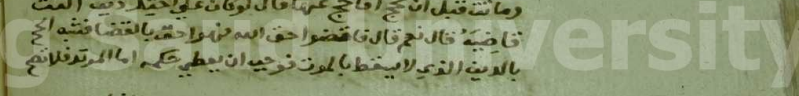 وماتت قبل ان تحج افاحج عنها قال لو كان على اختك دين اكنت
قاضيه قال نعم قال فاقضوا حق الله فهو احق بالقضا فشبه الحج
بالدين الذي لا يسقط بالموت فوجب ان يعطى حكمه اما المرتد فلا تصح